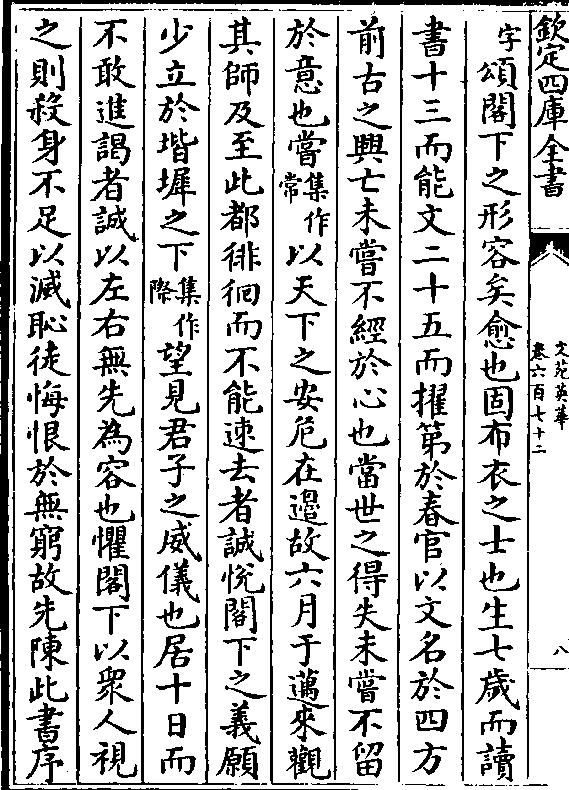 欽定四庫全書
文苑英華
卷六百七十二
八
字頌閣下之形容矣愈也固布衣之士也生七歲而讀
書十三而能文二十五而擢第於春官以文名於四方
前古之興亡未嘗不經於心也當世之得失未嘗不留
於意也嘗集作常以天下之安危在邉故六月于邁來觀
其師及至此都徘徊而不能速去者誠悅閣下之義願
少立於堦墀之下集作際望見君子之威儀也居十日而
不敢進謁者誠以左右無先為容也懼閣下以衆人視
之則殺身不足以滅恥徒悔恨於無窮故先陳此書序